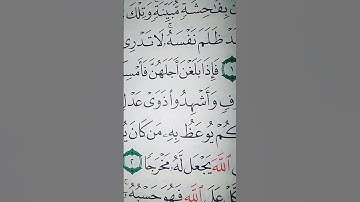 بِفَـٰحِشَةٍ مُّبَيِّنَةٍ وَتِلْكَ
ـدْ ظَلَمَ نَفْسَهُۥ ۚ لَا تَدْرِى
١ فَإِذَا بَلَغْنَ أَجَلَهُنَّ فَأَمْسِـ
ـفٍ وَأَشْهِدُوا۟ ذَوَىْ عَدْلٍ
ـكُمْ يُوعَظُ بِهِۦ مَن كَانَ يُـ
ٱللَّهَ يَجْعَل لَّهُۥ مَخْرَجًا ٢
ـكَّلْ عَلَى ٱللَّهِ فَهُوَ حَسْبُهُۥٓ ۚ